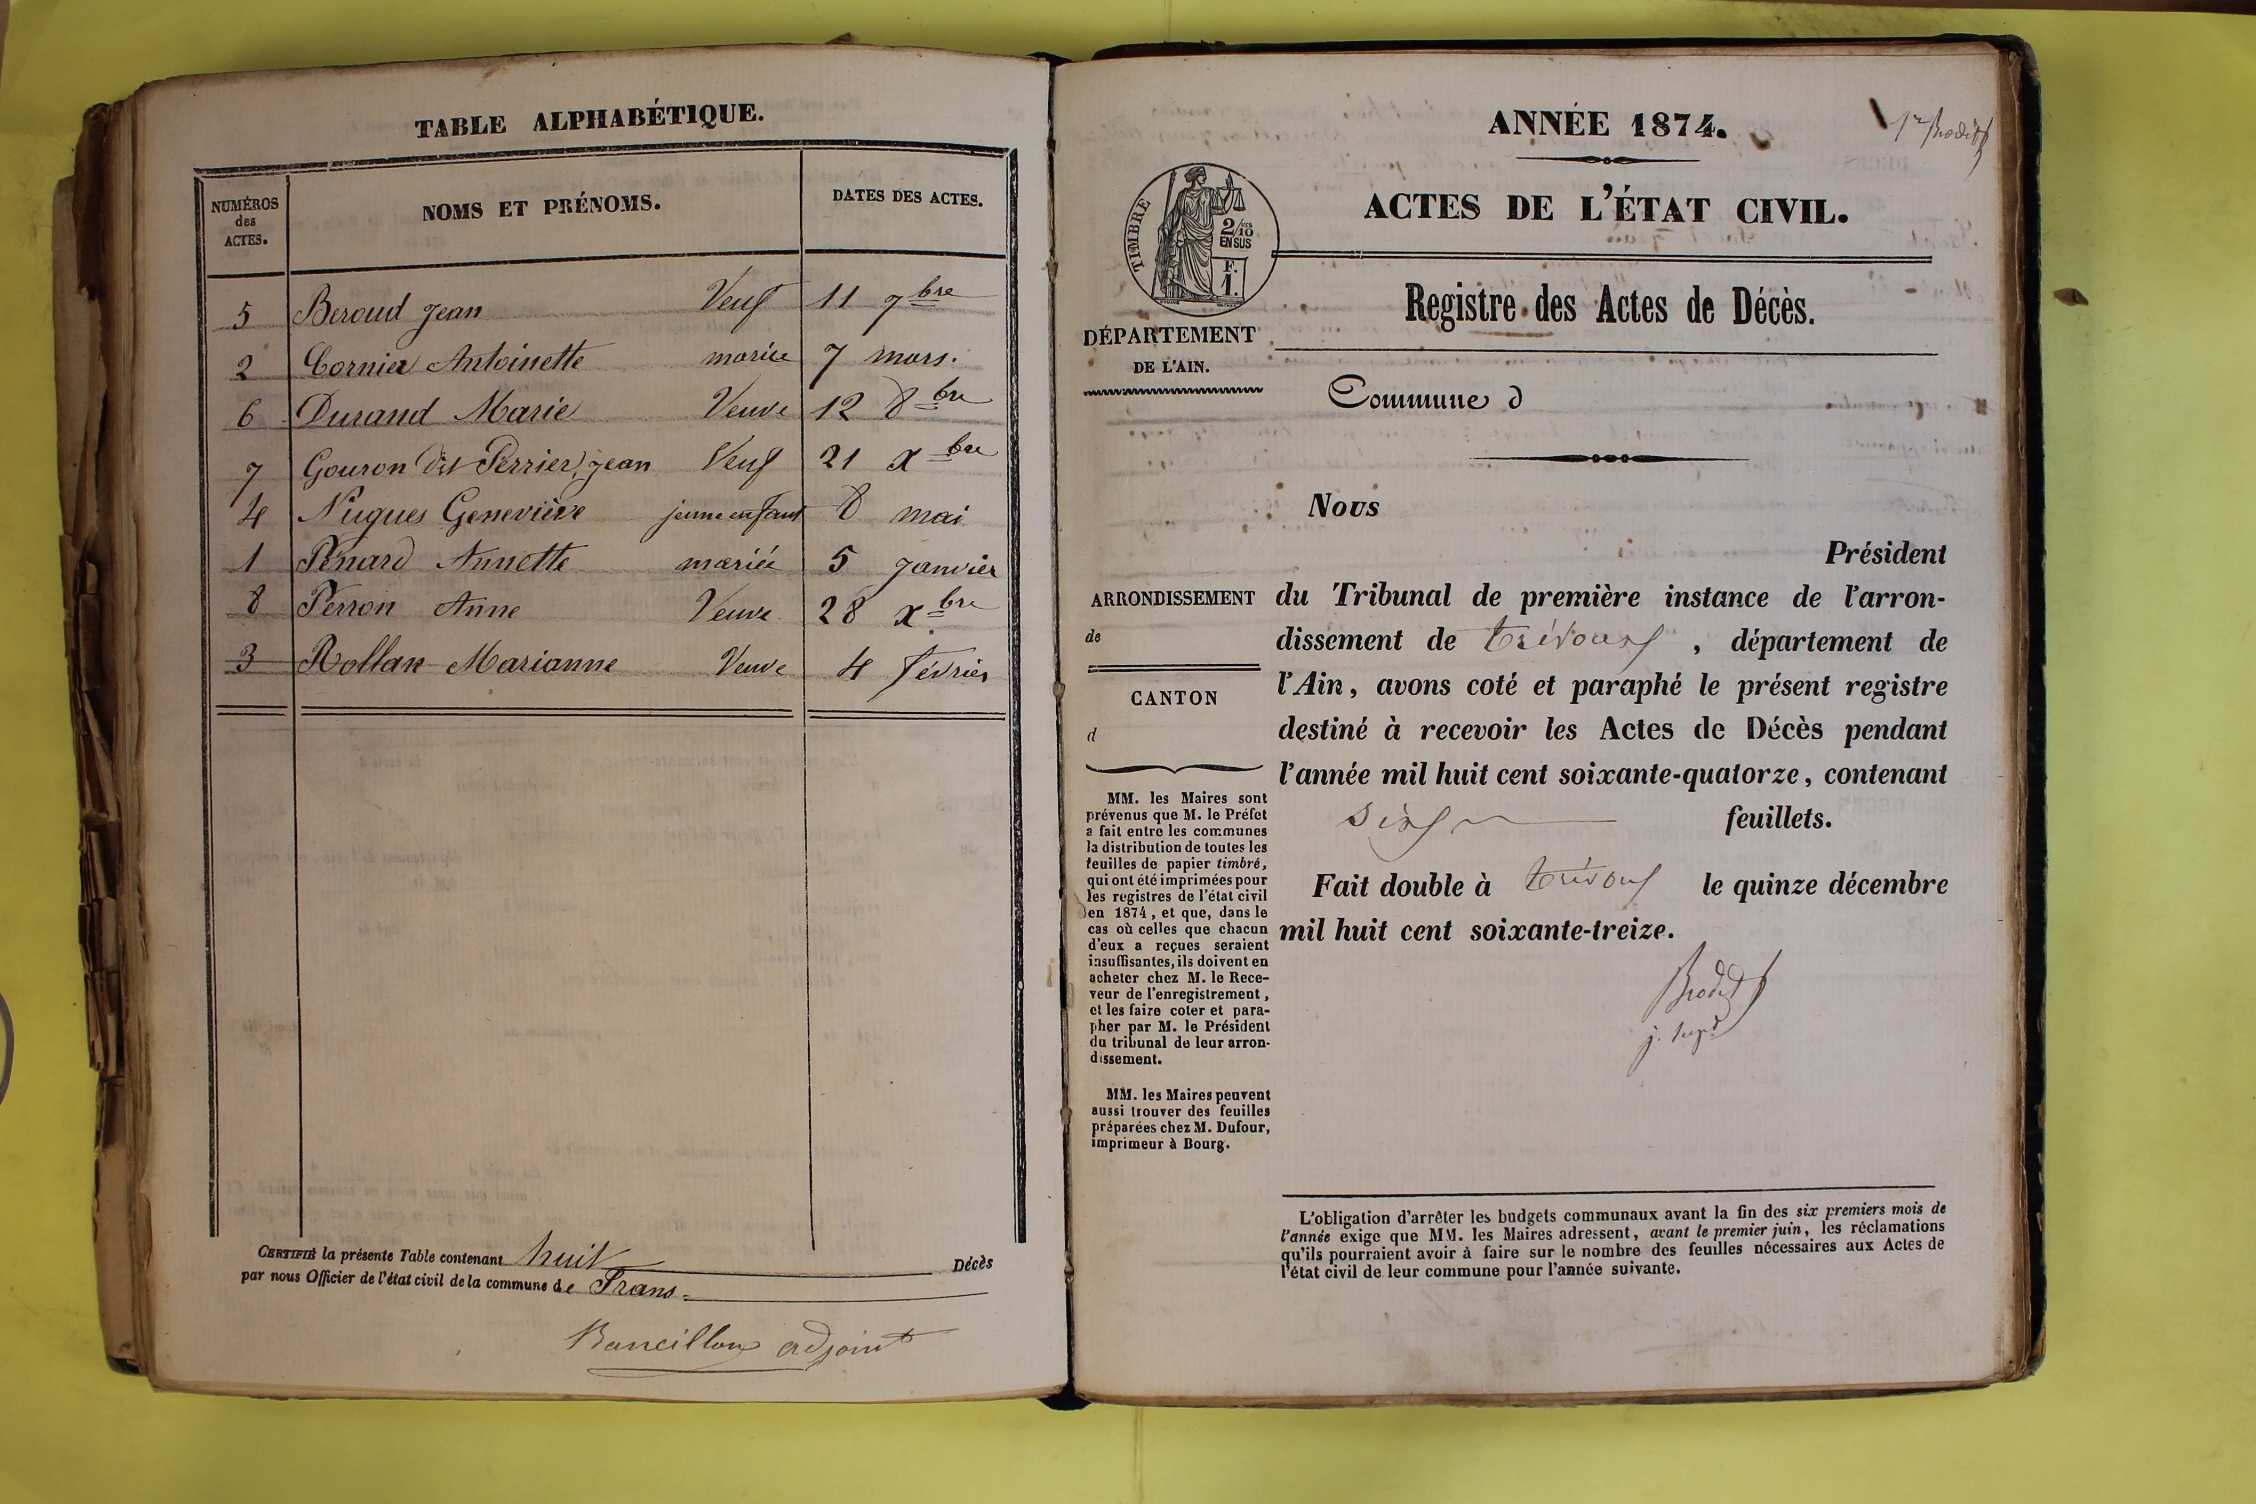 TABLE ALPHABÉTIQUE.
NUMÉROS
des
ACTES.
NOMS ET PRÉNOMS.
DATES DES ACTES.
5 Beroud Jean Veuf 11 7bre
2 Cornier Antoinette mariée 7 mars.
6 Durand Marie Veuve 12 8bre
7 Gouron dit Perrier, Jean Veuf 21 Xbre
4 Nugues Geneviève jeune enfant 8 mai
1 Penard Annette mariée 5 Janvier
8 Perron Anne Veuve 28 Xbre
3 Rollan Marianne Veuve 4 février
CERTIFIÉ la présente Table contenant huit Décès
par nous Officier de l'état civil de la commune de Trans
Bancillon adjoint
ANNÉE 1874.
ACTES DE L'ÉTAT CIVIL.
TIMBRE
2/10
EN SUS
F.
1.
DÉPARTEMENT
DE L'AIN.
Registre des Actes de Décès.
Commune d
Nous
Président
ARRONDISSEMENT
de
CANTON
d
du Tribunal de première instance de l'arron-
dissement de trévoux, département de
l'Ain, avons coté et paraphé le présent registre
destiné à recevoir les Actes de Décès pendant
l'année mil huit cent soixante-quatorze, contenant
six feuillets.
Fait double à trévoux le quinze décembre
mil huit cent soixante-treize.
MM. les Maires sont
prévenus que M. le Préfet
a fait entre les communes
la distribution de toutes les
feuilles de papier timbré,
qui ont été imprimées pour
les registres de l'état civil
en 1874, et que, dans le
cas où celles que chacun
d'eux a reçues seraient
insuffisantes, ils doivent en
acheter chez M. le Rece-
veur de l'enregistrement,
et les faire coter et para-
pher par M. le Président
du tribunal de leur arron-
dissement.
MM. les Maires peuvent
aussi trouver des feuilles
préparées chez M. Dufour,
imprimeur à Bourg.
L'obligation d'arrêter les budgets communaux avant la fin des six premiers mois de
l'année exige que MM. les Maires adressent, avant le premier juin, les réclamations
qu'ils pourraient avoir à faire sur le nombre des feuilles nécessaires aux Actes de
l'état civil de leur commune pour l'année suivante.